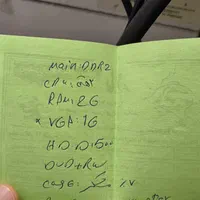 Main: DDR2
CPU:
RAM: 2G
VGA: 1G
HDD: 500
DVD+RW
CASE: